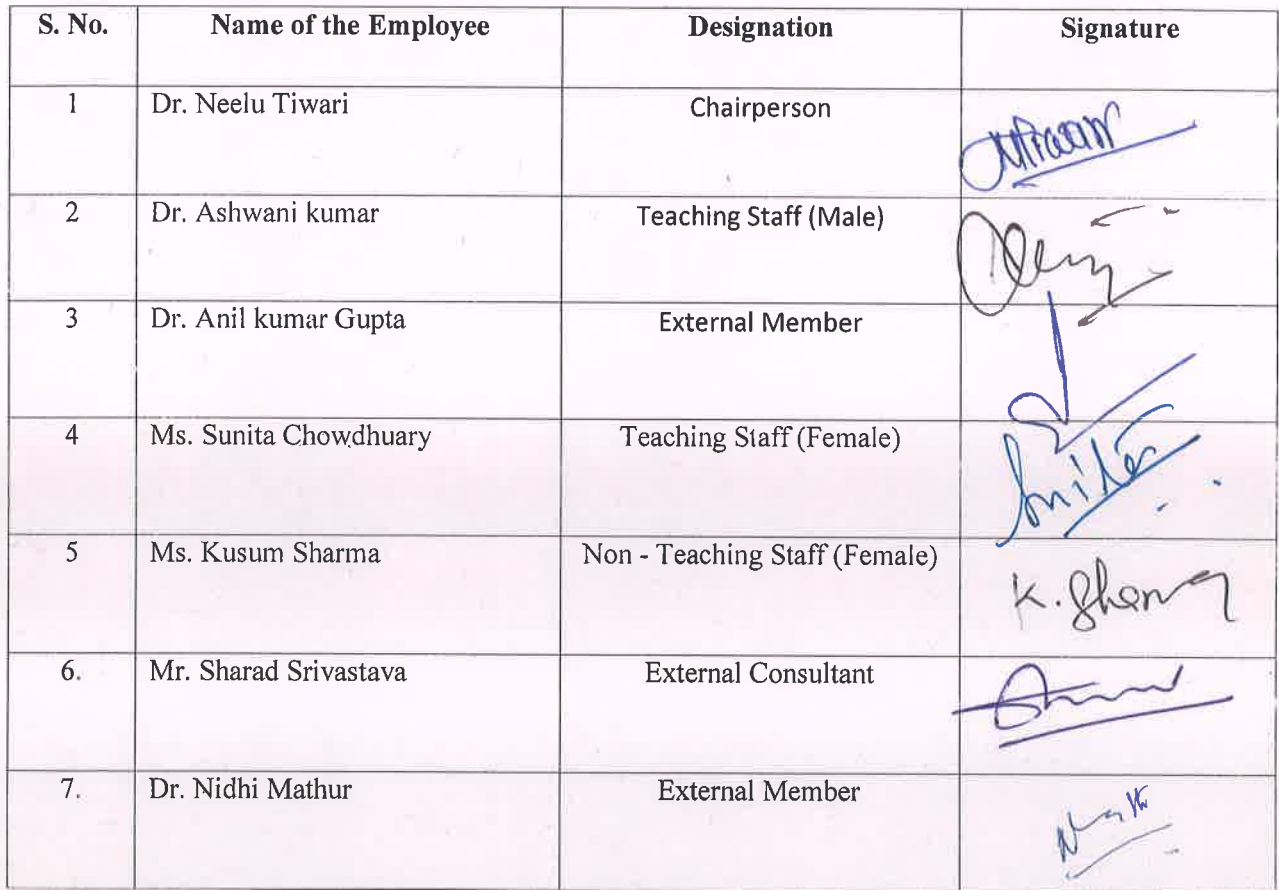 S. No. Name of the Employee Designation Signature
1 Dr. Neelu Tiwari Chairperson
2 Dr. Ashwani kumar Teaching Staff (Male)
3 Dr. Anil kumar Gupta External Member
4 Ms. Sunita Chowdhuary Teaching Staff (Female)
5 Ms. Kusum Sharma Non - Teaching Staff (Female) K. Sharma
6. Mr. Sharad Srivastava External Consultant
7. Dr. Nidhi Mathur External Member